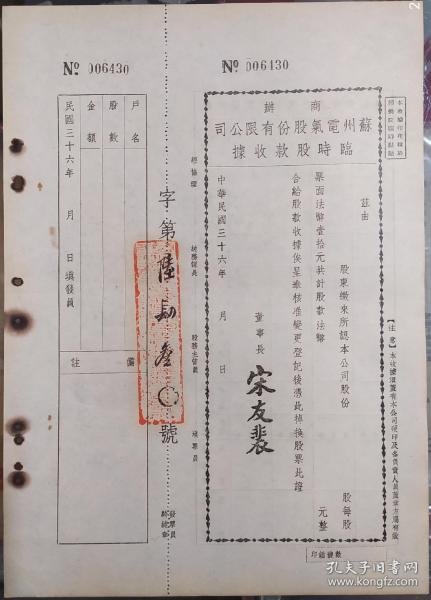 Nº 006430
Nº 006430
商辦
蘇州電氣股份有限公司
臨時股款收據
茲由
股東繳來所認本公司股份
股每股
票面法幣壹拾元共計股款法幣
元整
合給股款收據俟呈奉核准變更登記後憑此掉換股票此證
董事長
宋友裴
中華民國三十六年
月
日
【注意】本收據須蓋有本公司硬印及各負責人員蓋章方為有效
經協理
總務課長
股務主管員
填票員
字第陸肆叁號
戶名
股數
金額
民國三十六年
月
日填發員
備
註
孔夫子旧书网
www.kongfz.com